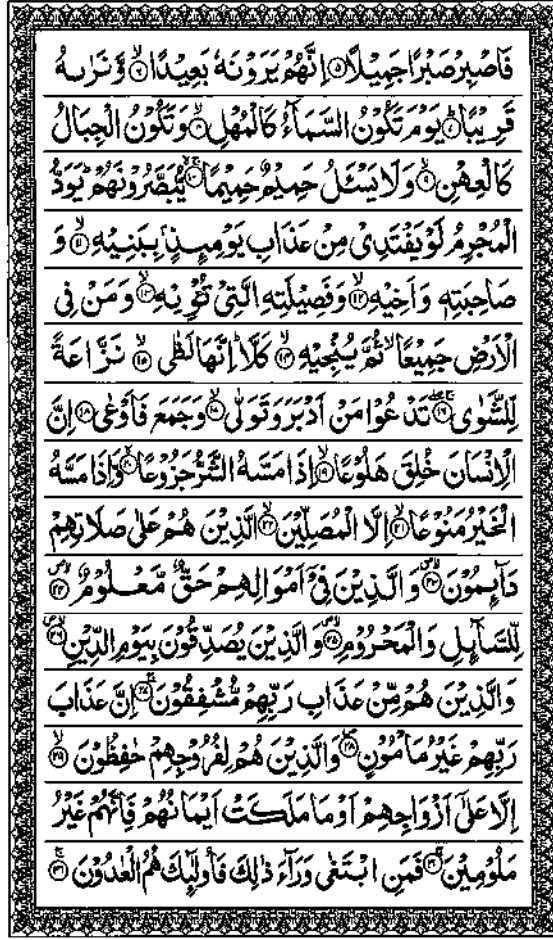 فَاصْبِرْ صَبْرًا جَمِيْلًا ۝۵ اِنَّهُمْ يَرَوْنَهٗ بَعِيْدًا ۝۶ۙ وَّنَرٰىهُ
قَرِيْبًا ۝۷ؕ يَوْمَ تَكُوْنُ السَّمَآءُ كَالْمُهْلِ ۝۸ۙ وَتَكُوْنُ الْجِبَالُ
كَالْعِهْنِ ۝۹ۙ وَلَا يَسْئَلُ حَمِيْمٌ حَمِيْمًا ۝۱۰ۚۖ يُّبَصَّرُوْنَهُمْ ؕ يَوَدُّ
الْمُجْرِمُ لَوْ يَفْتَدِيْ مِنْ عَذَابِ يَوْمِىِٕذٍۭ بِبَنِيْهِ ۝۱۱ۙ وَ
صَاحِبَتِهٖ وَاَخِيْهِ ۝۱۲ۙ وَفَصِيْلَتِهِ الَّتِيْ تُـْٔوِيْهِ ۝۱۳ۙ وَمَنْ فِي
الْاَرْضِ جَمِيْعًا ۙ ثُمَّ يُنْجِيْهِ ۝۱۴ۙ كَلَّا ؕ اِنَّهَا لَظٰى ۝۱۵ۙ نَزَّاعَةً
لِّلشَّوٰى ۝۱۶ۚۖ تَدْعُوْا مَنْ اَدْبَرَ وَتَوَلّٰى ۝۱۷ۙ وَجَمَعَ فَاَوْعٰى ۝۱۸ اِنَّ
الْاِنْسَانَ خُلِقَ هَلُوْعًا ۝۱۹ۙ اِذَا مَسَّهُ الشَّرُّ جَزُوْعًا ۝۲۰ۙ وَّاِذَا مَسَّهُ
الْخَيْرُ مَنُوْعًا ۝۲۱ۙ اِلَّا الْمُصَلِّيْنَ ۝۲۲ۙ الَّذِيْنَ هُمْ عَلٰى صَلَاتِهِمْ
دَآىِٕمُوْنَ ۝۲۳۪ۙ وَالَّذِيْنَ فِيْۤ اَمْوَالِهِمْ حَقٌّ مَّعْلُوْمٌ ۝۲۴۪ۙ
لِّلسَّآىِٕلِ وَالْمَحْرُوْمِ ۝۲۵۪ۙ وَالَّذِيْنَ يُصَدِّقُوْنَ بِيَوْمِ الدِّيْنِ ۝۲۶۪ۙ
وَالَّذِيْنَ هُمْ مِّنْ عَذَابِ رَبِّهِمْ مُّشْفِقُوْنَ ۝۲۷ۚ اِنَّ عَذَابَ
رَبِّهِمْ غَيْرُ مَاْمُوْنٍ ۝۲۸ وَالَّذِيْنَ هُمْ لِفُرُوْجِهِمْ حٰفِظُوْنَ ۝۲۹ۙ
اِلَّا عَلٰۤى اَزْوَاجِهِمْ اَوْ مَا مَلَكَتْ اَيْمَانُهُمْ فَاِنَّهُمْ غَيْرُ
مَلُوْمِيْنَ ۝۳۰ۚ فَمَنِ ابْتَغٰى وَرَآءَ ذٰلِكَ فَاُولٰٓىِٕكَ هُمُ الْعٰدُوْنَ ۝۳۱ۚ